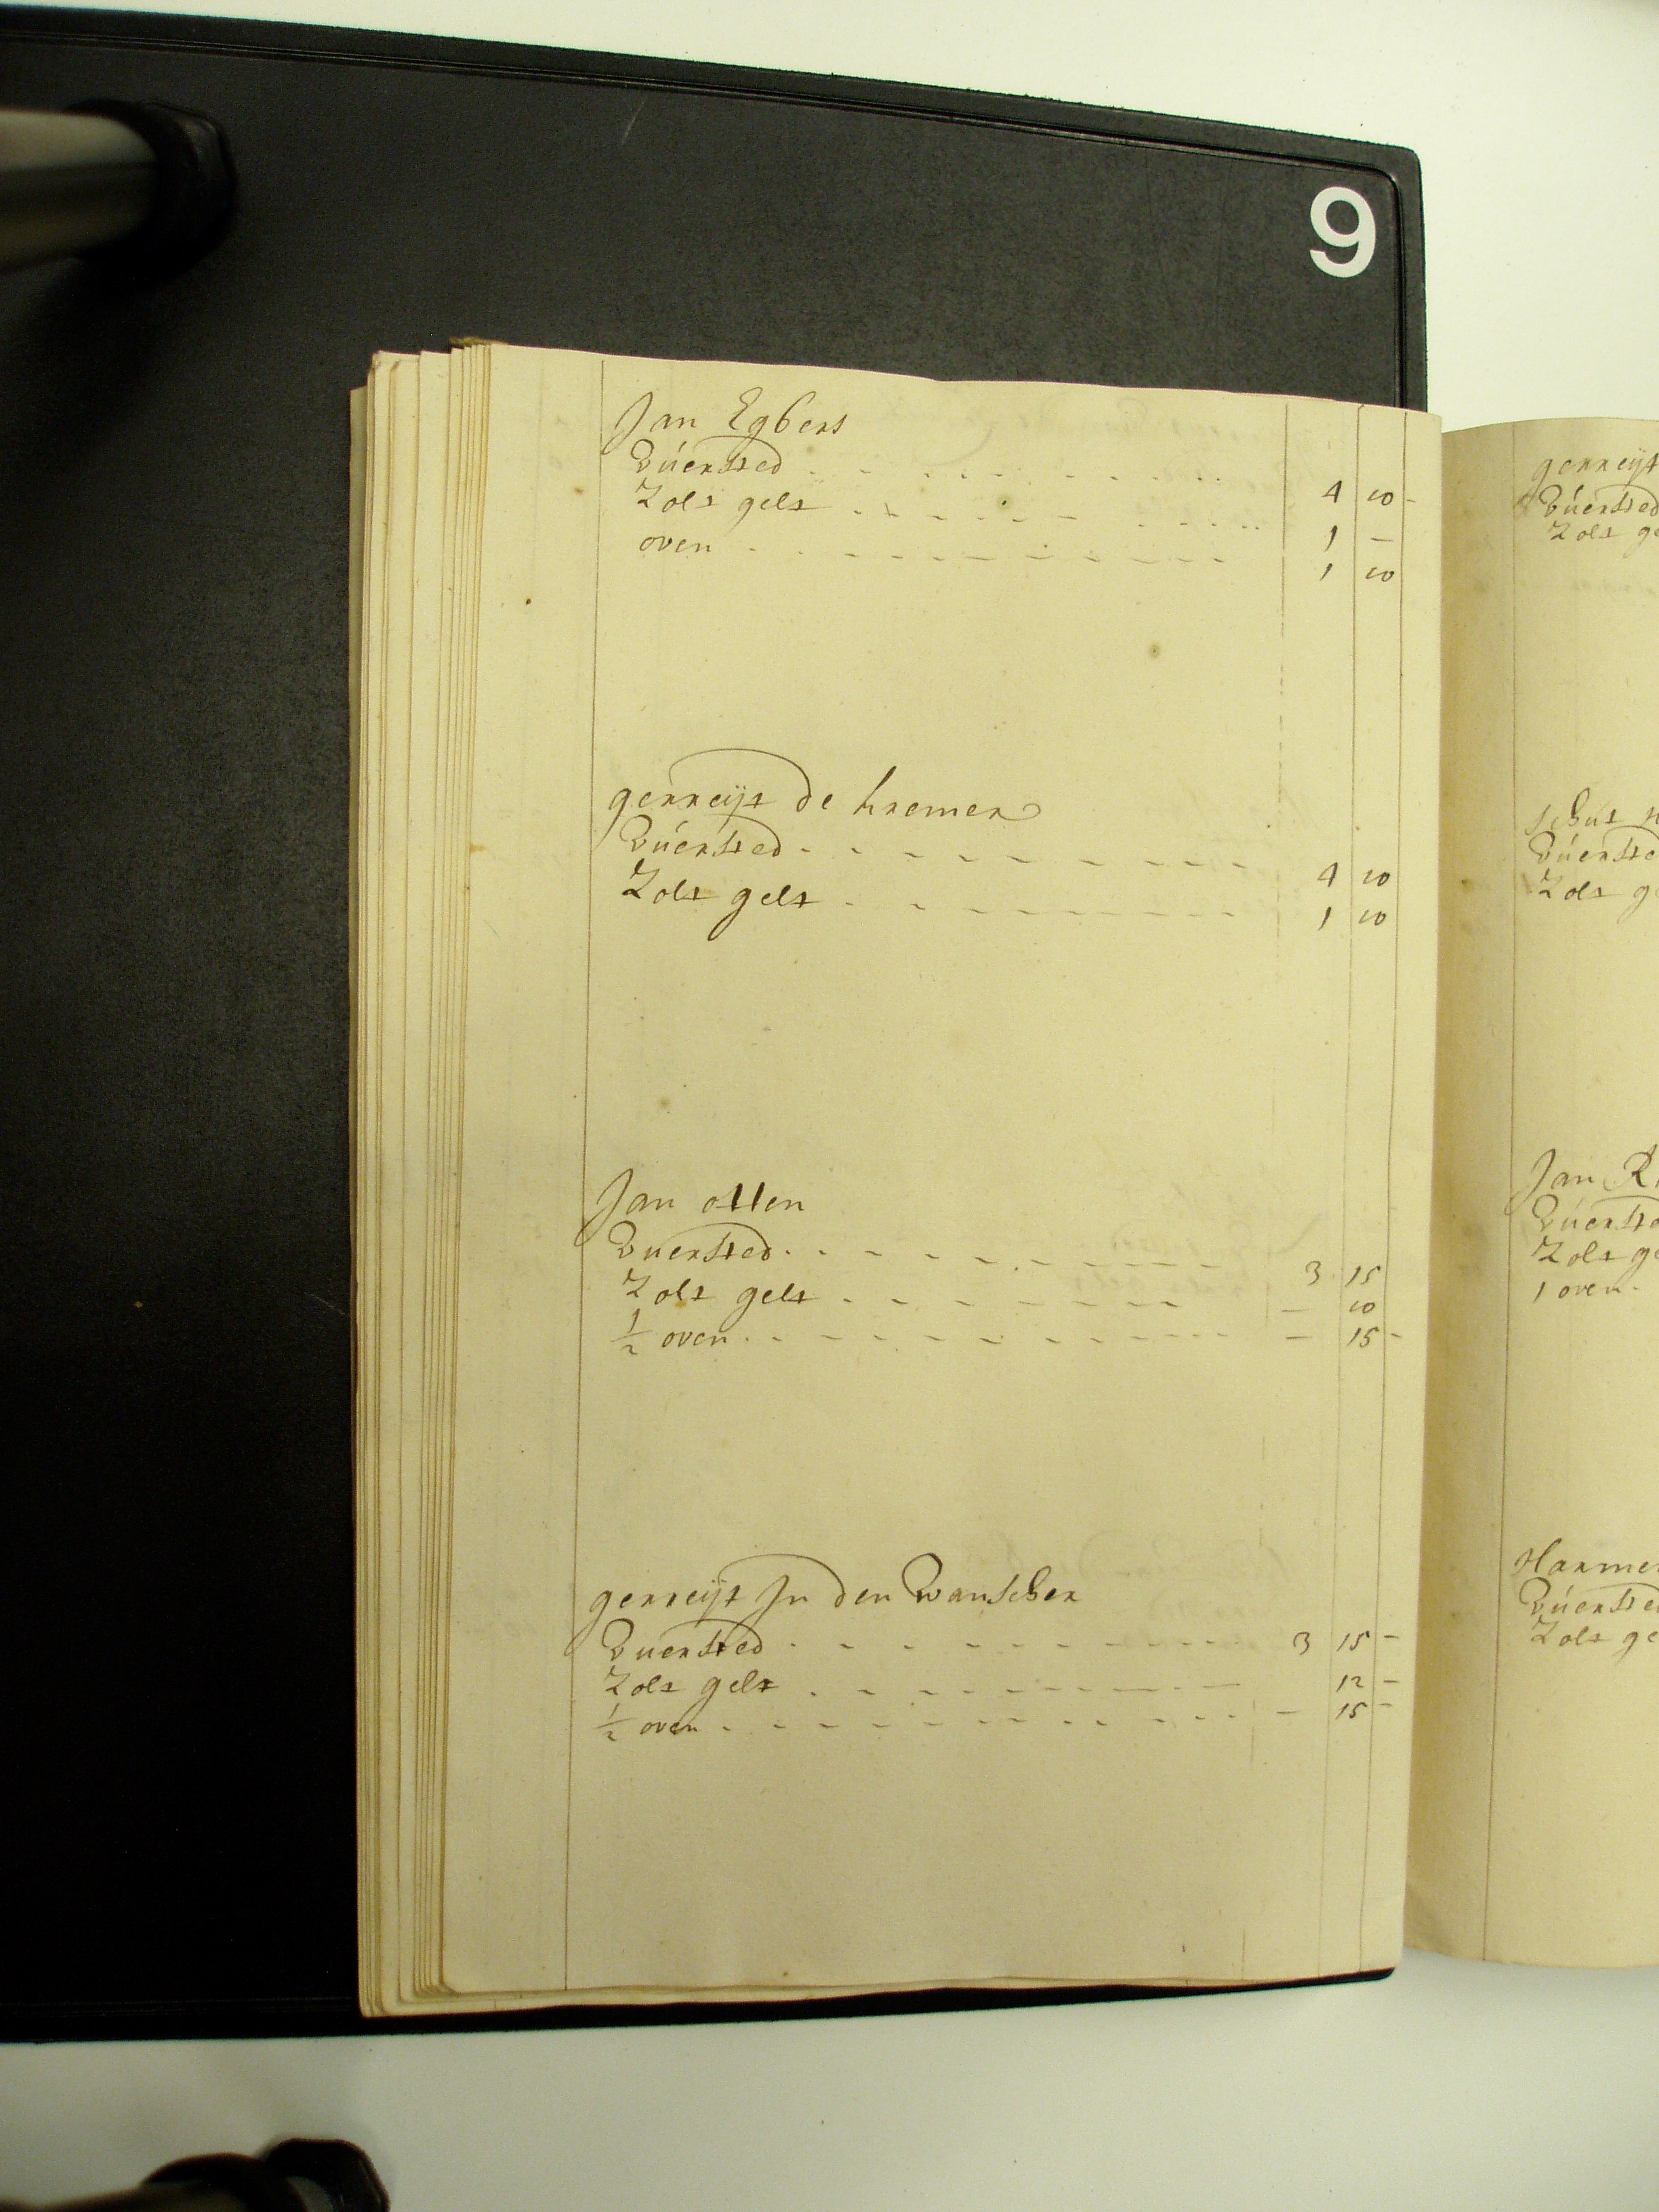 9
Jan Egbers
vúersted . . . . . . . . . . 4 10 -
Zols gels . . . . . . . . . . 1 -
oven . . . . . . . . . . 1 10
gerreijt de kremer
vúersted . . . . . . . . . . 4 10
Zols gels . . . . . . . . . . 1 10
Jan otten
vuersted . . . . . . . . . . 3 15
Zols gels . . . . . . . . . . - 10
1/2 oven . . . . . . . . . . - 15 -
gerreijt Jn den wanscher
vuersted . . . . . . . . . . 3 15 -
Zols gels . . . . . . . . . . 12 -
1/2 oven . . . . . . . . . . - 15 -
gerreijt
vúersted
Zols ge
vúerste
Zols g
Jan R
vúerste
Zols ge
1 oven .
Harme
vúerste
Zols ge